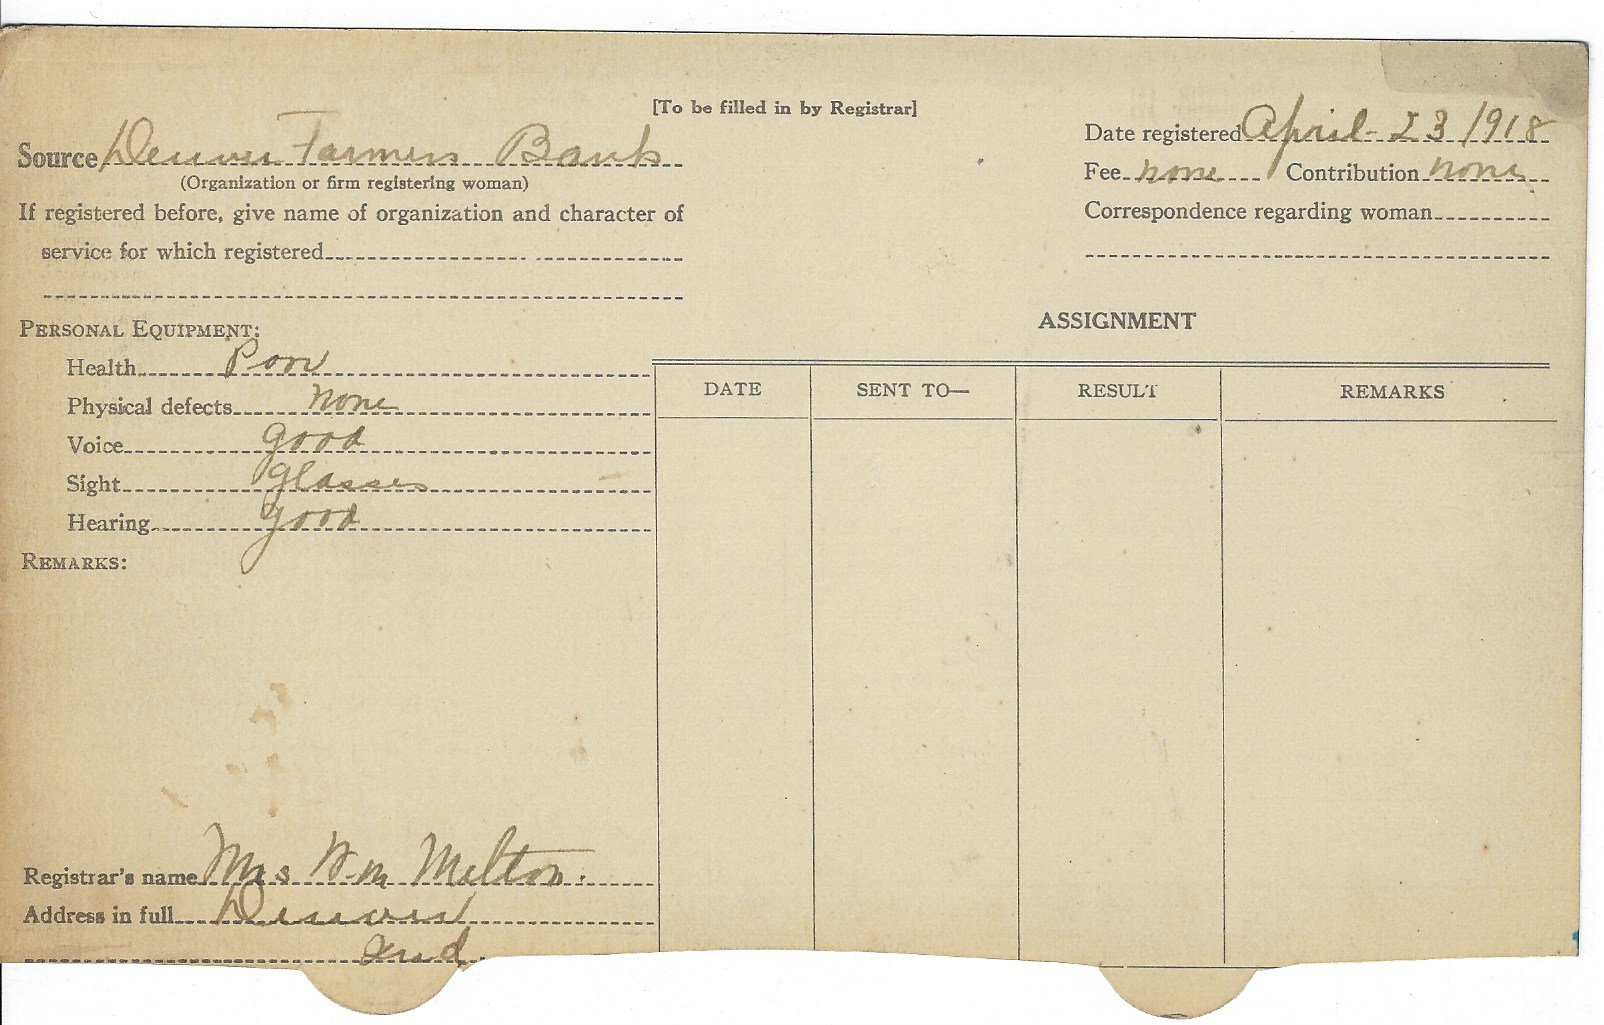 [To be filled in by Registrar]
Source Denver Farmers Bank
(Organization or firm registering woman)
If registered before, give name of organization and character of
service for which registered
Date registered April - 23 1918
Fee none Contribution none
Correspondence regarding woman
PERSONAL EQUIPMENT:
Health Poor
Physical defects none
Voice good
Sight glasses
Hearing good
REMARKS:
ASSIGNMENT
DATE SENT TO— RESULT REMARKS
Registrar's name Mrs Wm Melton.
Address in full Denver
Ind